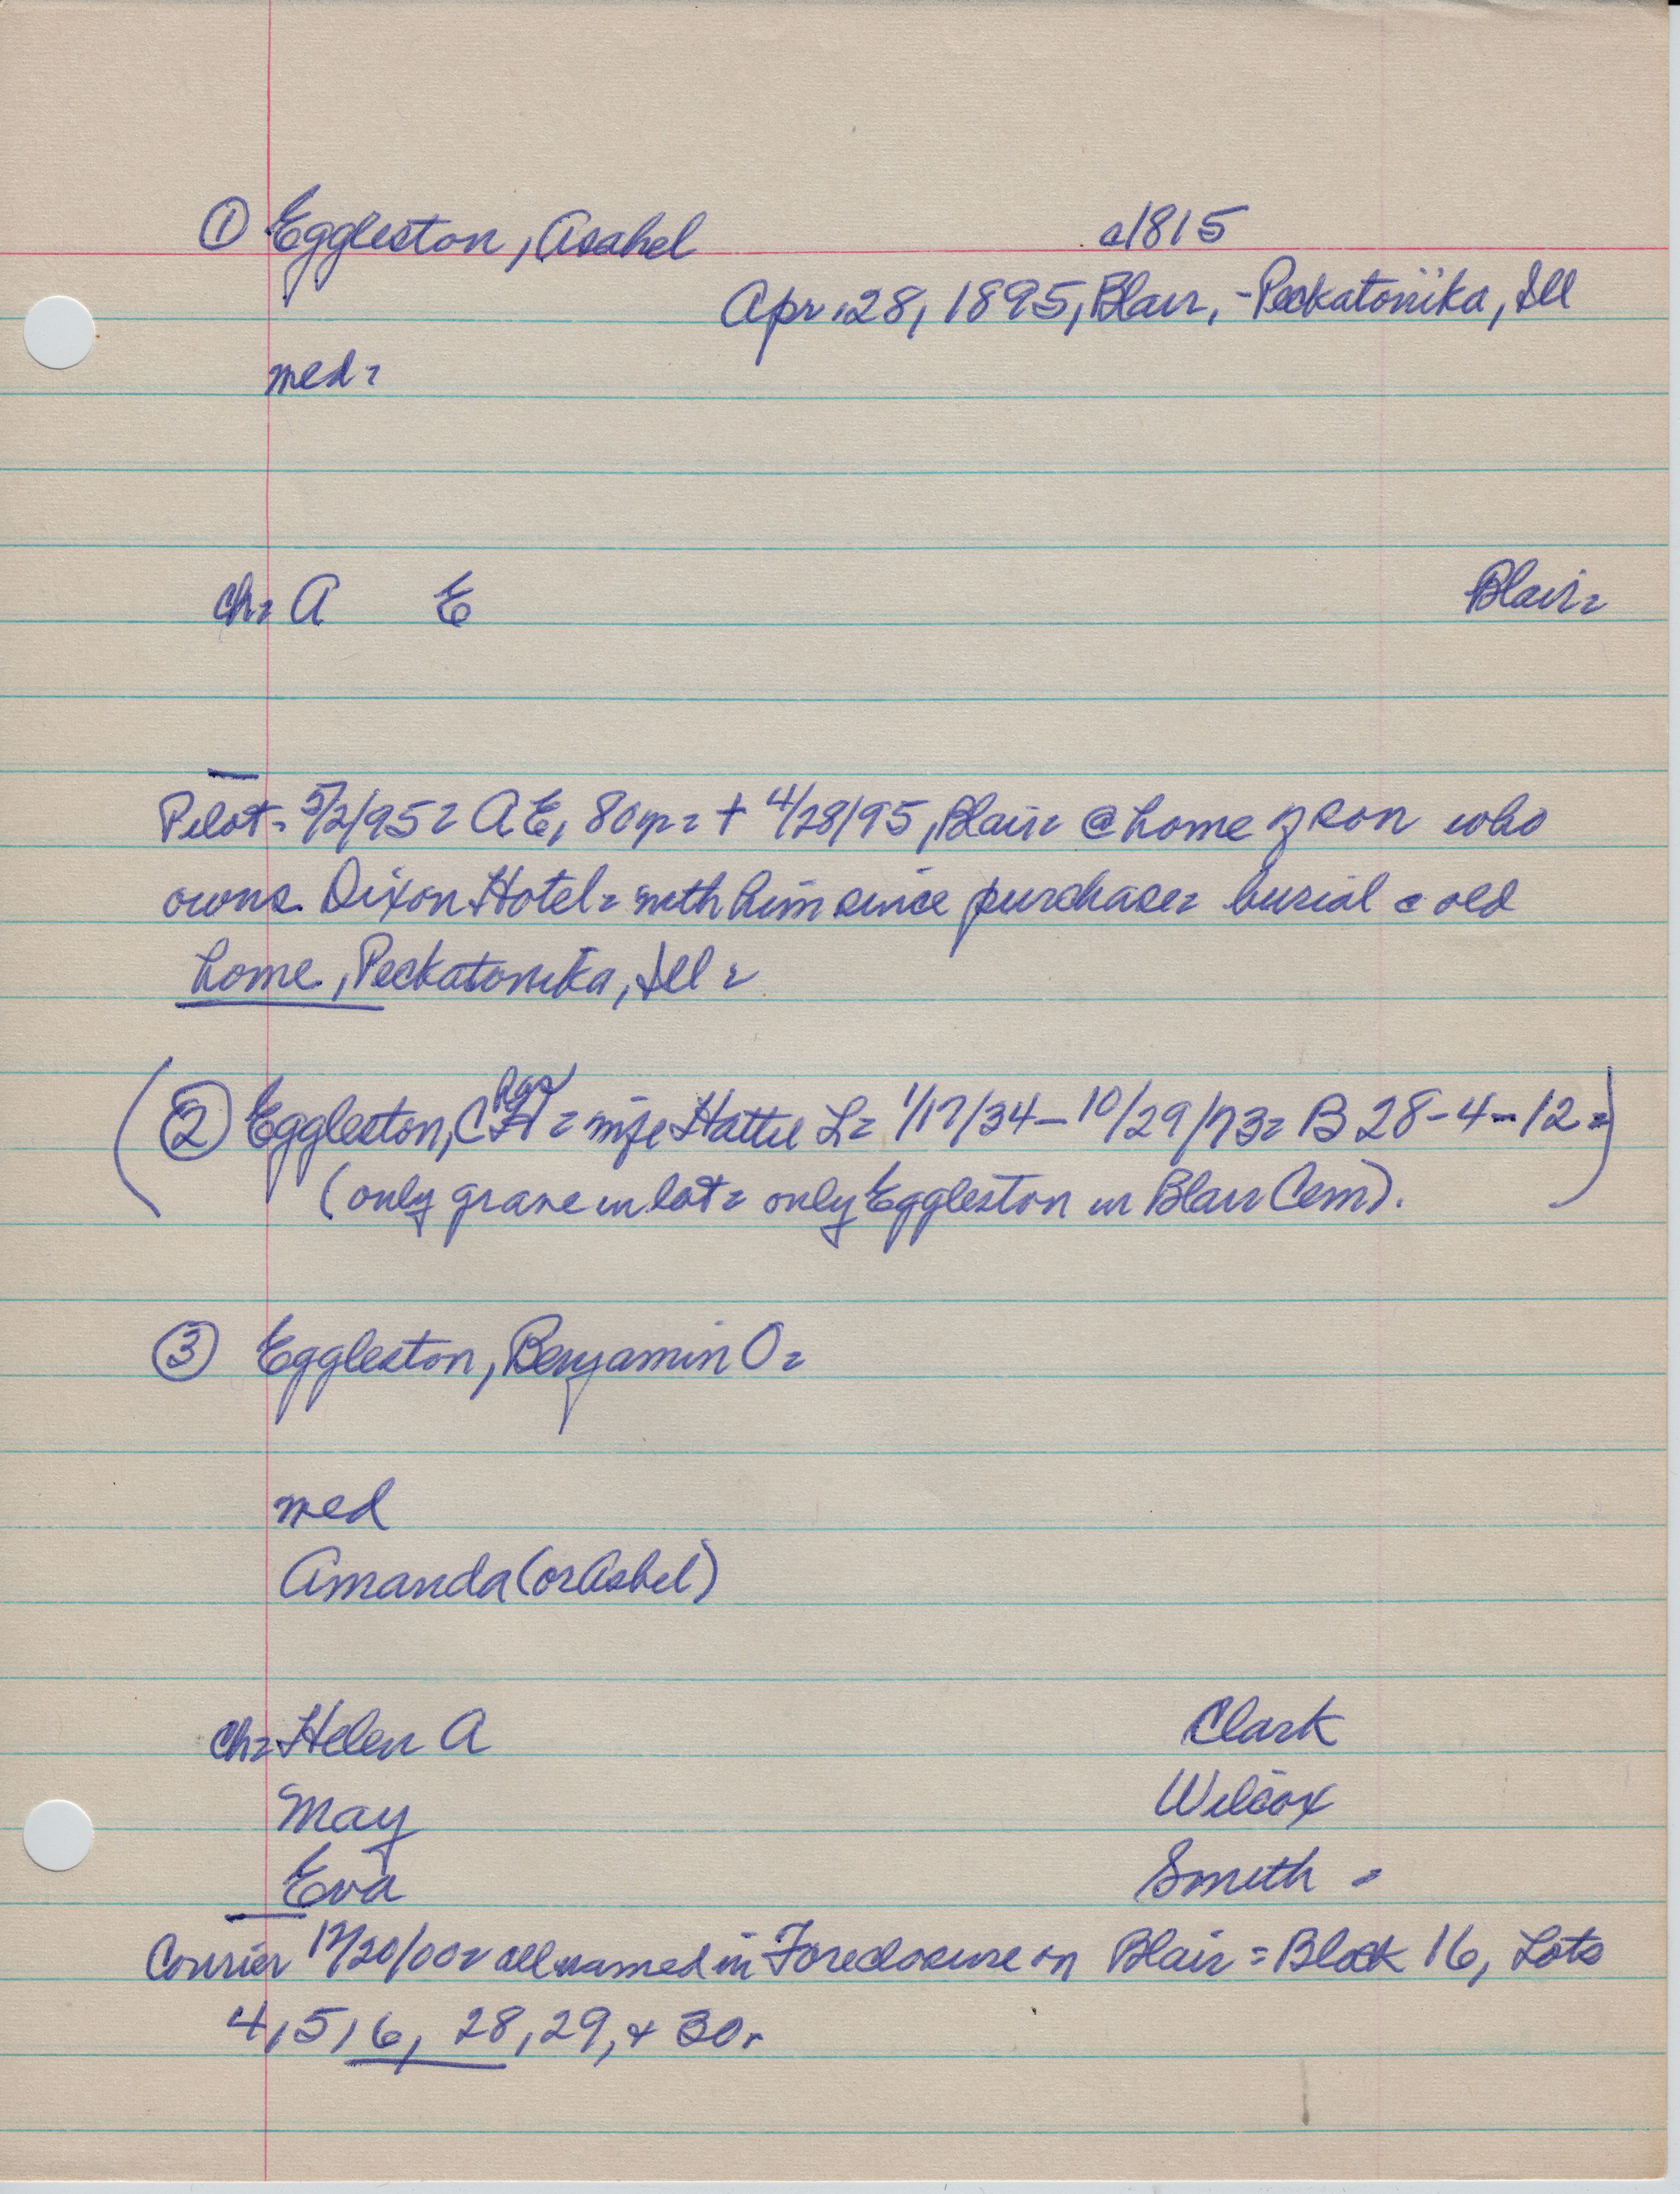 ① Eggleston, Asahel c1815
Apr. 28, 1895, Blair, - Peckatonika, Ill
med=
ch= A E Blair=
Pilot= 5/2/95= A E, 80 yr= + 4/28/95, Blair= @ home of son who
owns Dixon Hotel= with him since purchase= burial @ old
home, Peckatonika, Ill=
(② Eggleston, C H = wife Hattie L= 1/17/34 - 10/29/73= B 28-4-12=)
(only grave in lot= only Eggleston in Blair Cem).
③ Eggleston, Benjamin O=
med
Amanda (or Asbel)
ch= Helen A Clark
May Wilcox
Eva Smith =
Courier 12/20/00= all named in Foreclosure on Blair = Block 16, Lots
4, 5, 6, 28, 29, & 30.